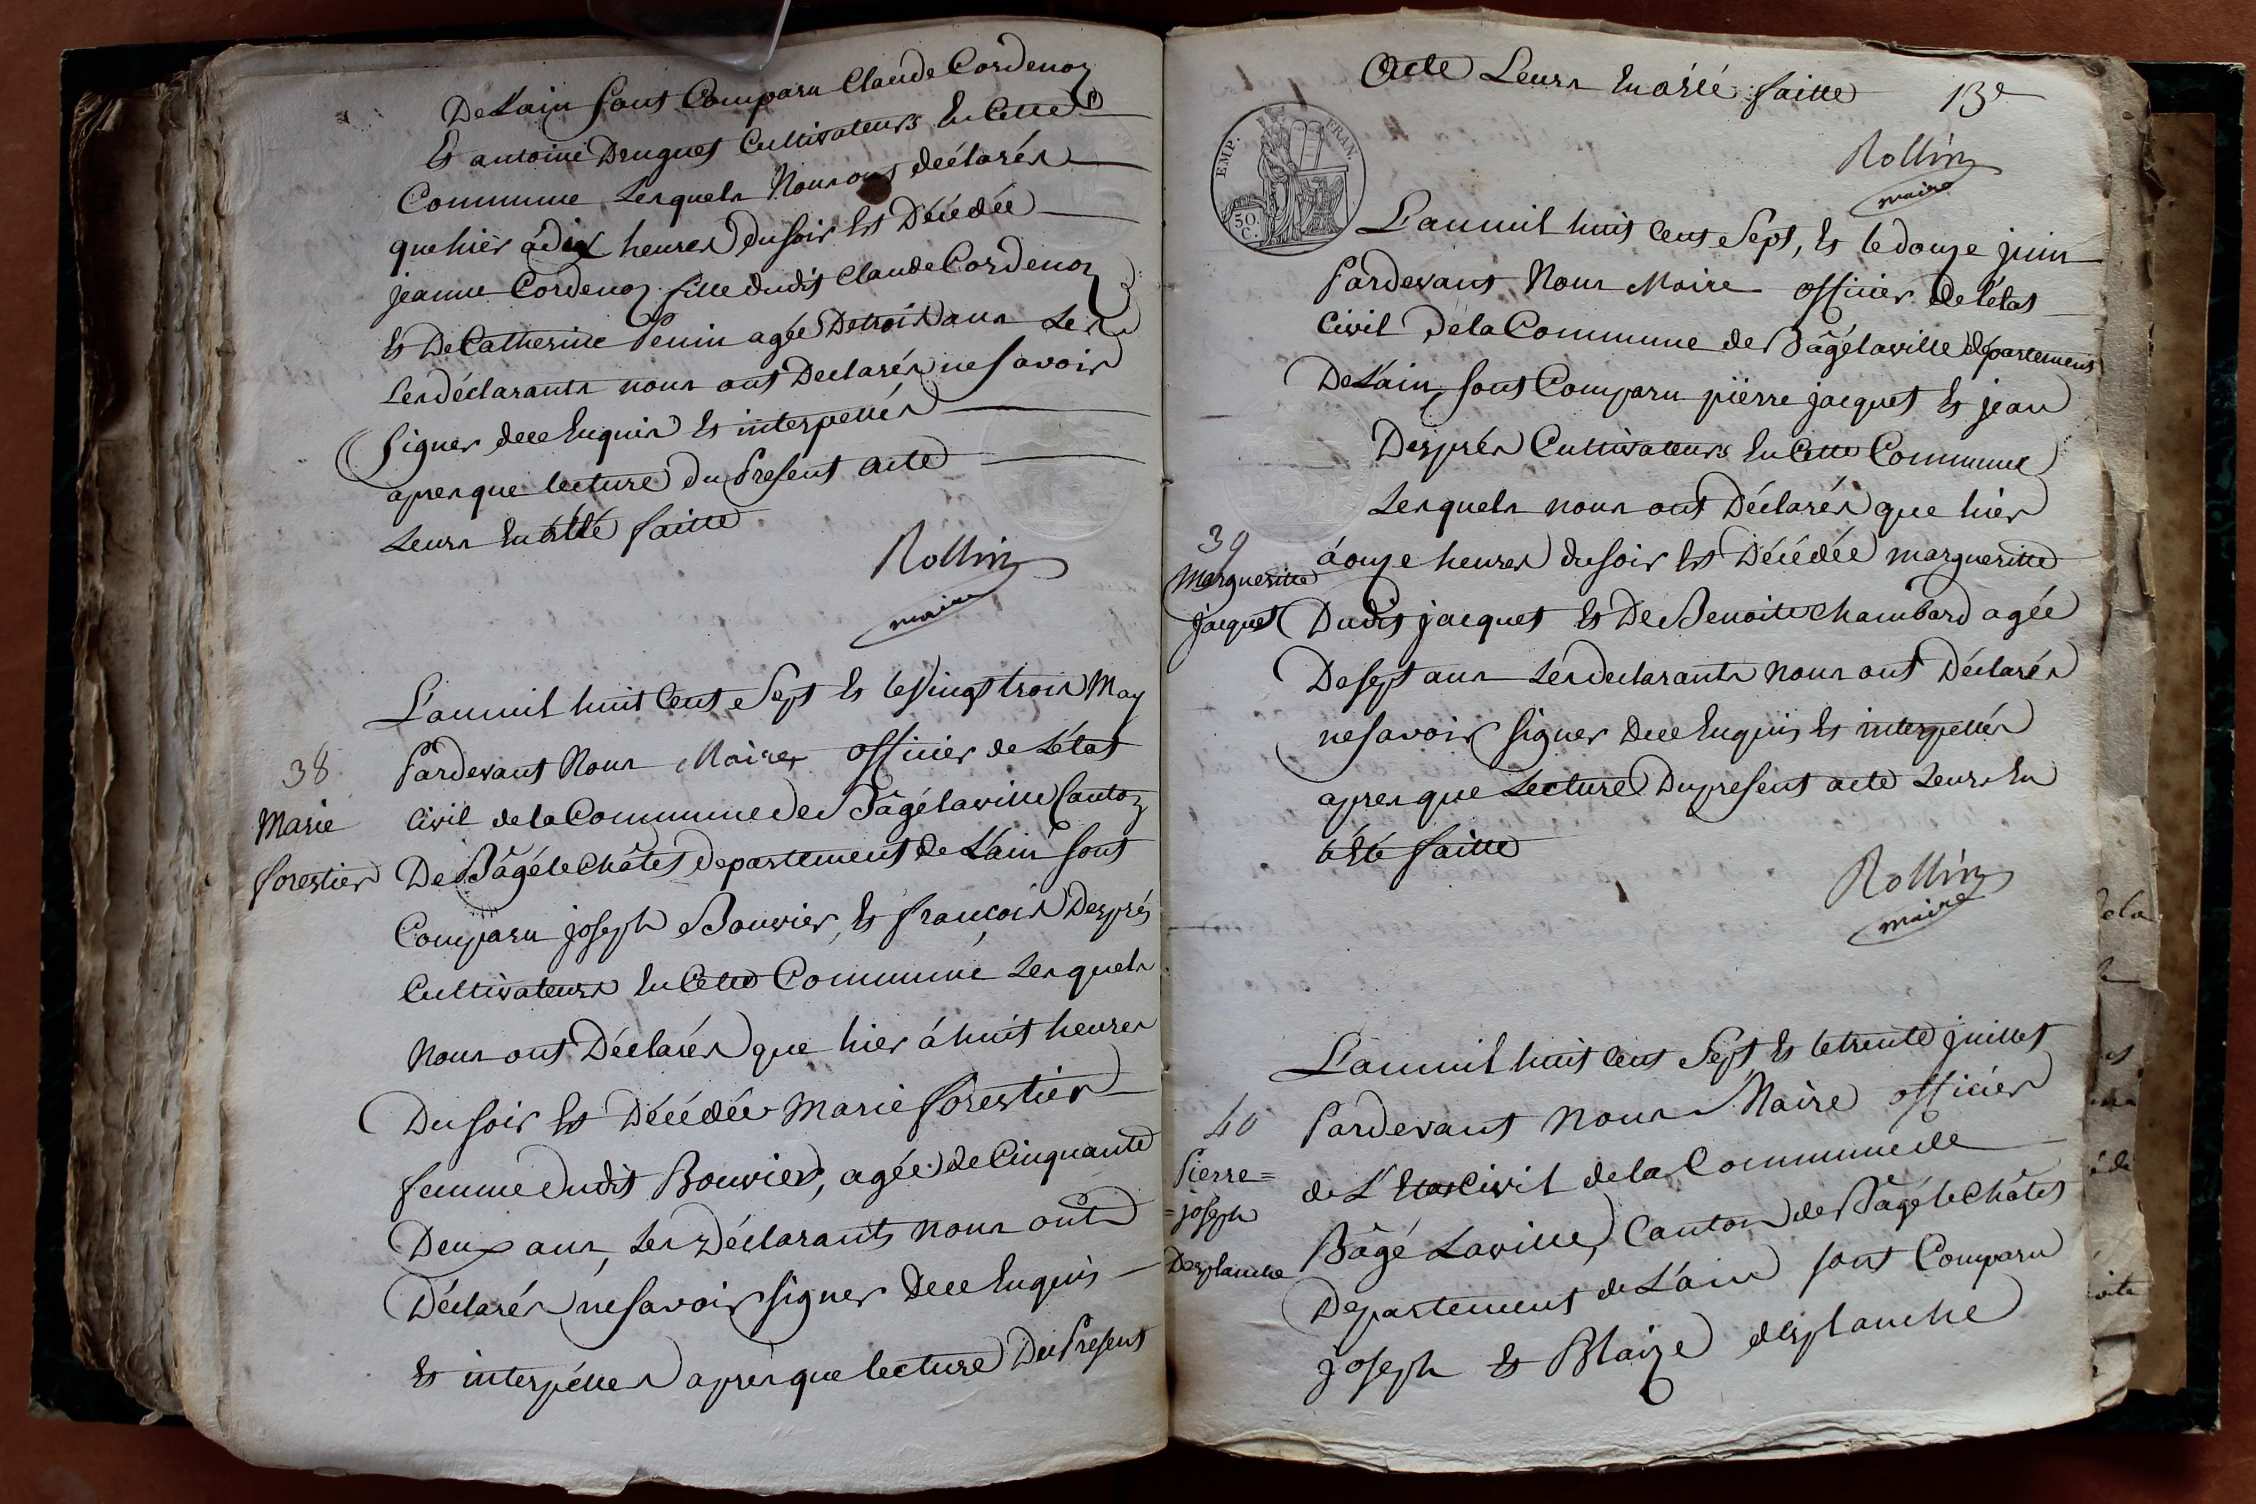 De L'ain sont Comparu Claude Cordenoz
Et antoine Druguet Cultivateurs En Cette
Commune Lesquels Nous ont déclarés
que hier à dix heures du soir Est Décédée
jeanne Cordenoz fille dudit Claude Cordenoz
Et De Catherine Penin agée De trois ans Les
Les déclarants nous ont Declarés ne savoir
Signer de ce Enquis Et interpellés
apres que lecture du Present acte
Leurs En a été faitte
Rollin
maire
L'an mil huit Cent Sept Et le Vingt trois May
38
Pardevant Nous Maire officier de L'état
Marie
Civil de la Commune de Bâgé laville Canton
forestier
De Bâgé le Châtel departement de L'ain sont
Comparu joseph Bouvier, Et françois Després
Cultivateurs En Cette Commune Lesquels
Nous ont Déclarés que hier à huit heures
Du soir Est Décédée Marie forestier
femme dudit Bouvier, agée de Cinquante
Deux ans, Les Déclarants nous ont
Déclarés ne savoir signer De ce Enquis
Et interpéllés apres que lecture Du Present
Acte Leurs En a été faitte
13e
EMP. FRAN.
50.
C.
Rollin
maire
L'an mil huit Cent Sept, Et le douze juin
Pardevant Nous Maire officier de l'état
Civil de la Commune de Bâgé laville département
De L'ain, sont Comparu pièrre jacquet Et jean
Després Cultivateurs En Cette Commune
Lesquels nous ont Déclarés que hier
39
à onze heures du soir Est Décédée margueritte
Margueritte
jacquet
Dudit jacquet Et De Benoite Chambard agée
De sept ans Les declarants Nous ont Déclarés
ne savoir signer De ce Enquis Et interpellés
apres que Lecture Du present acte Leurs En
à été faitte
Rollin
maire
L'an mil huit Cent Sept Et le trente juillet
40
Pardevant Nous Maire officier
Pierre=
de L'Etat Civil de la Commune de
=joseph
Bâgé Laville, Canton de Bâgé le Châtel
Desplanche
Departement de L'ain sont Comparu
joseph Et Blaize desplanche